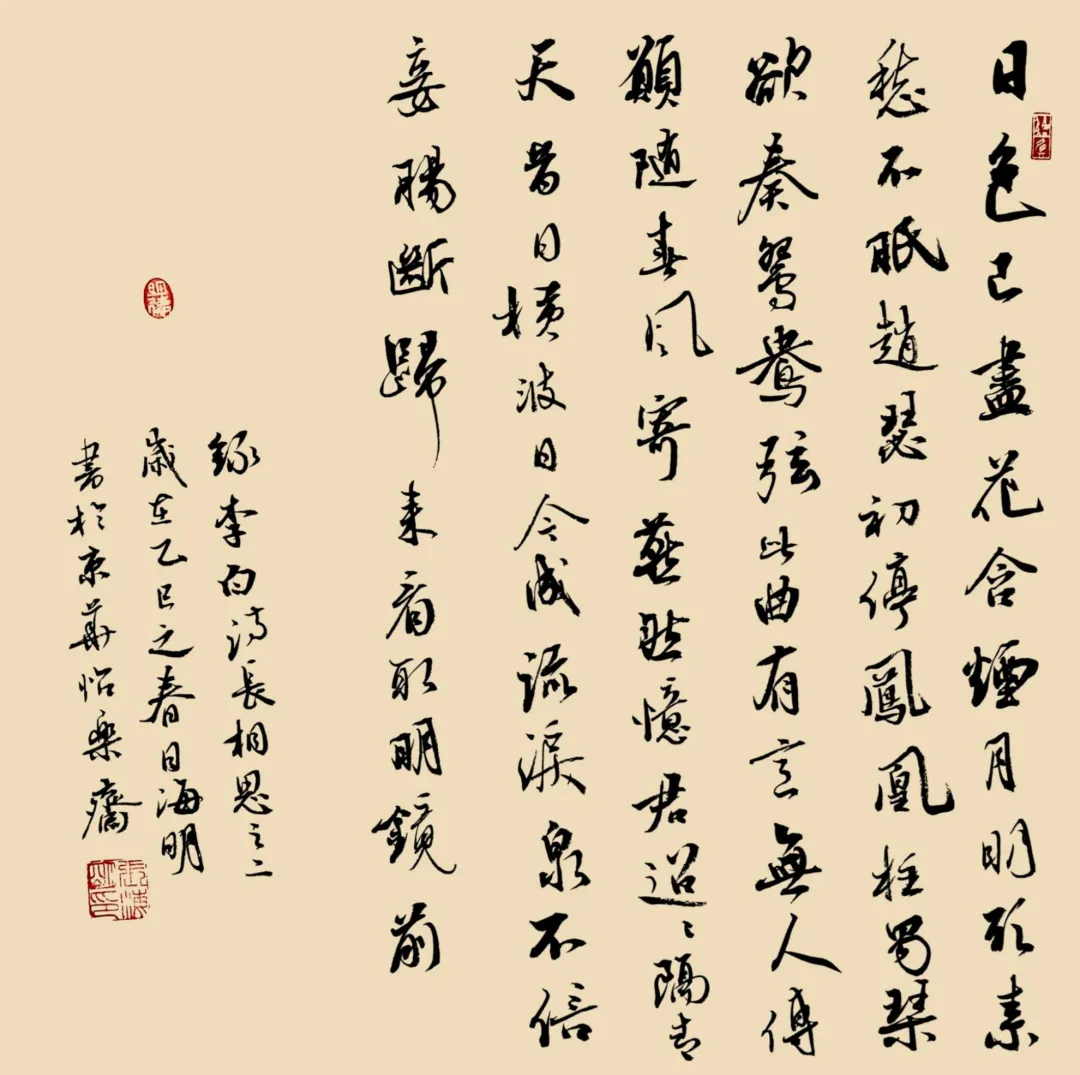 日色已盡花含煙月明欲素
愁不眠趙瑟初停鳳凰柱蜀琴
欲奏鴛鴦弦此曲有意無人傳
願隨春風寄燕然憶君迢〻隔青
天昔日橫波目今成流淚泉不信
妾腸斷歸來看取明鏡前
錄李白詩長相思之二
歲在乙巳之春日海明
書於京華怡樂齋